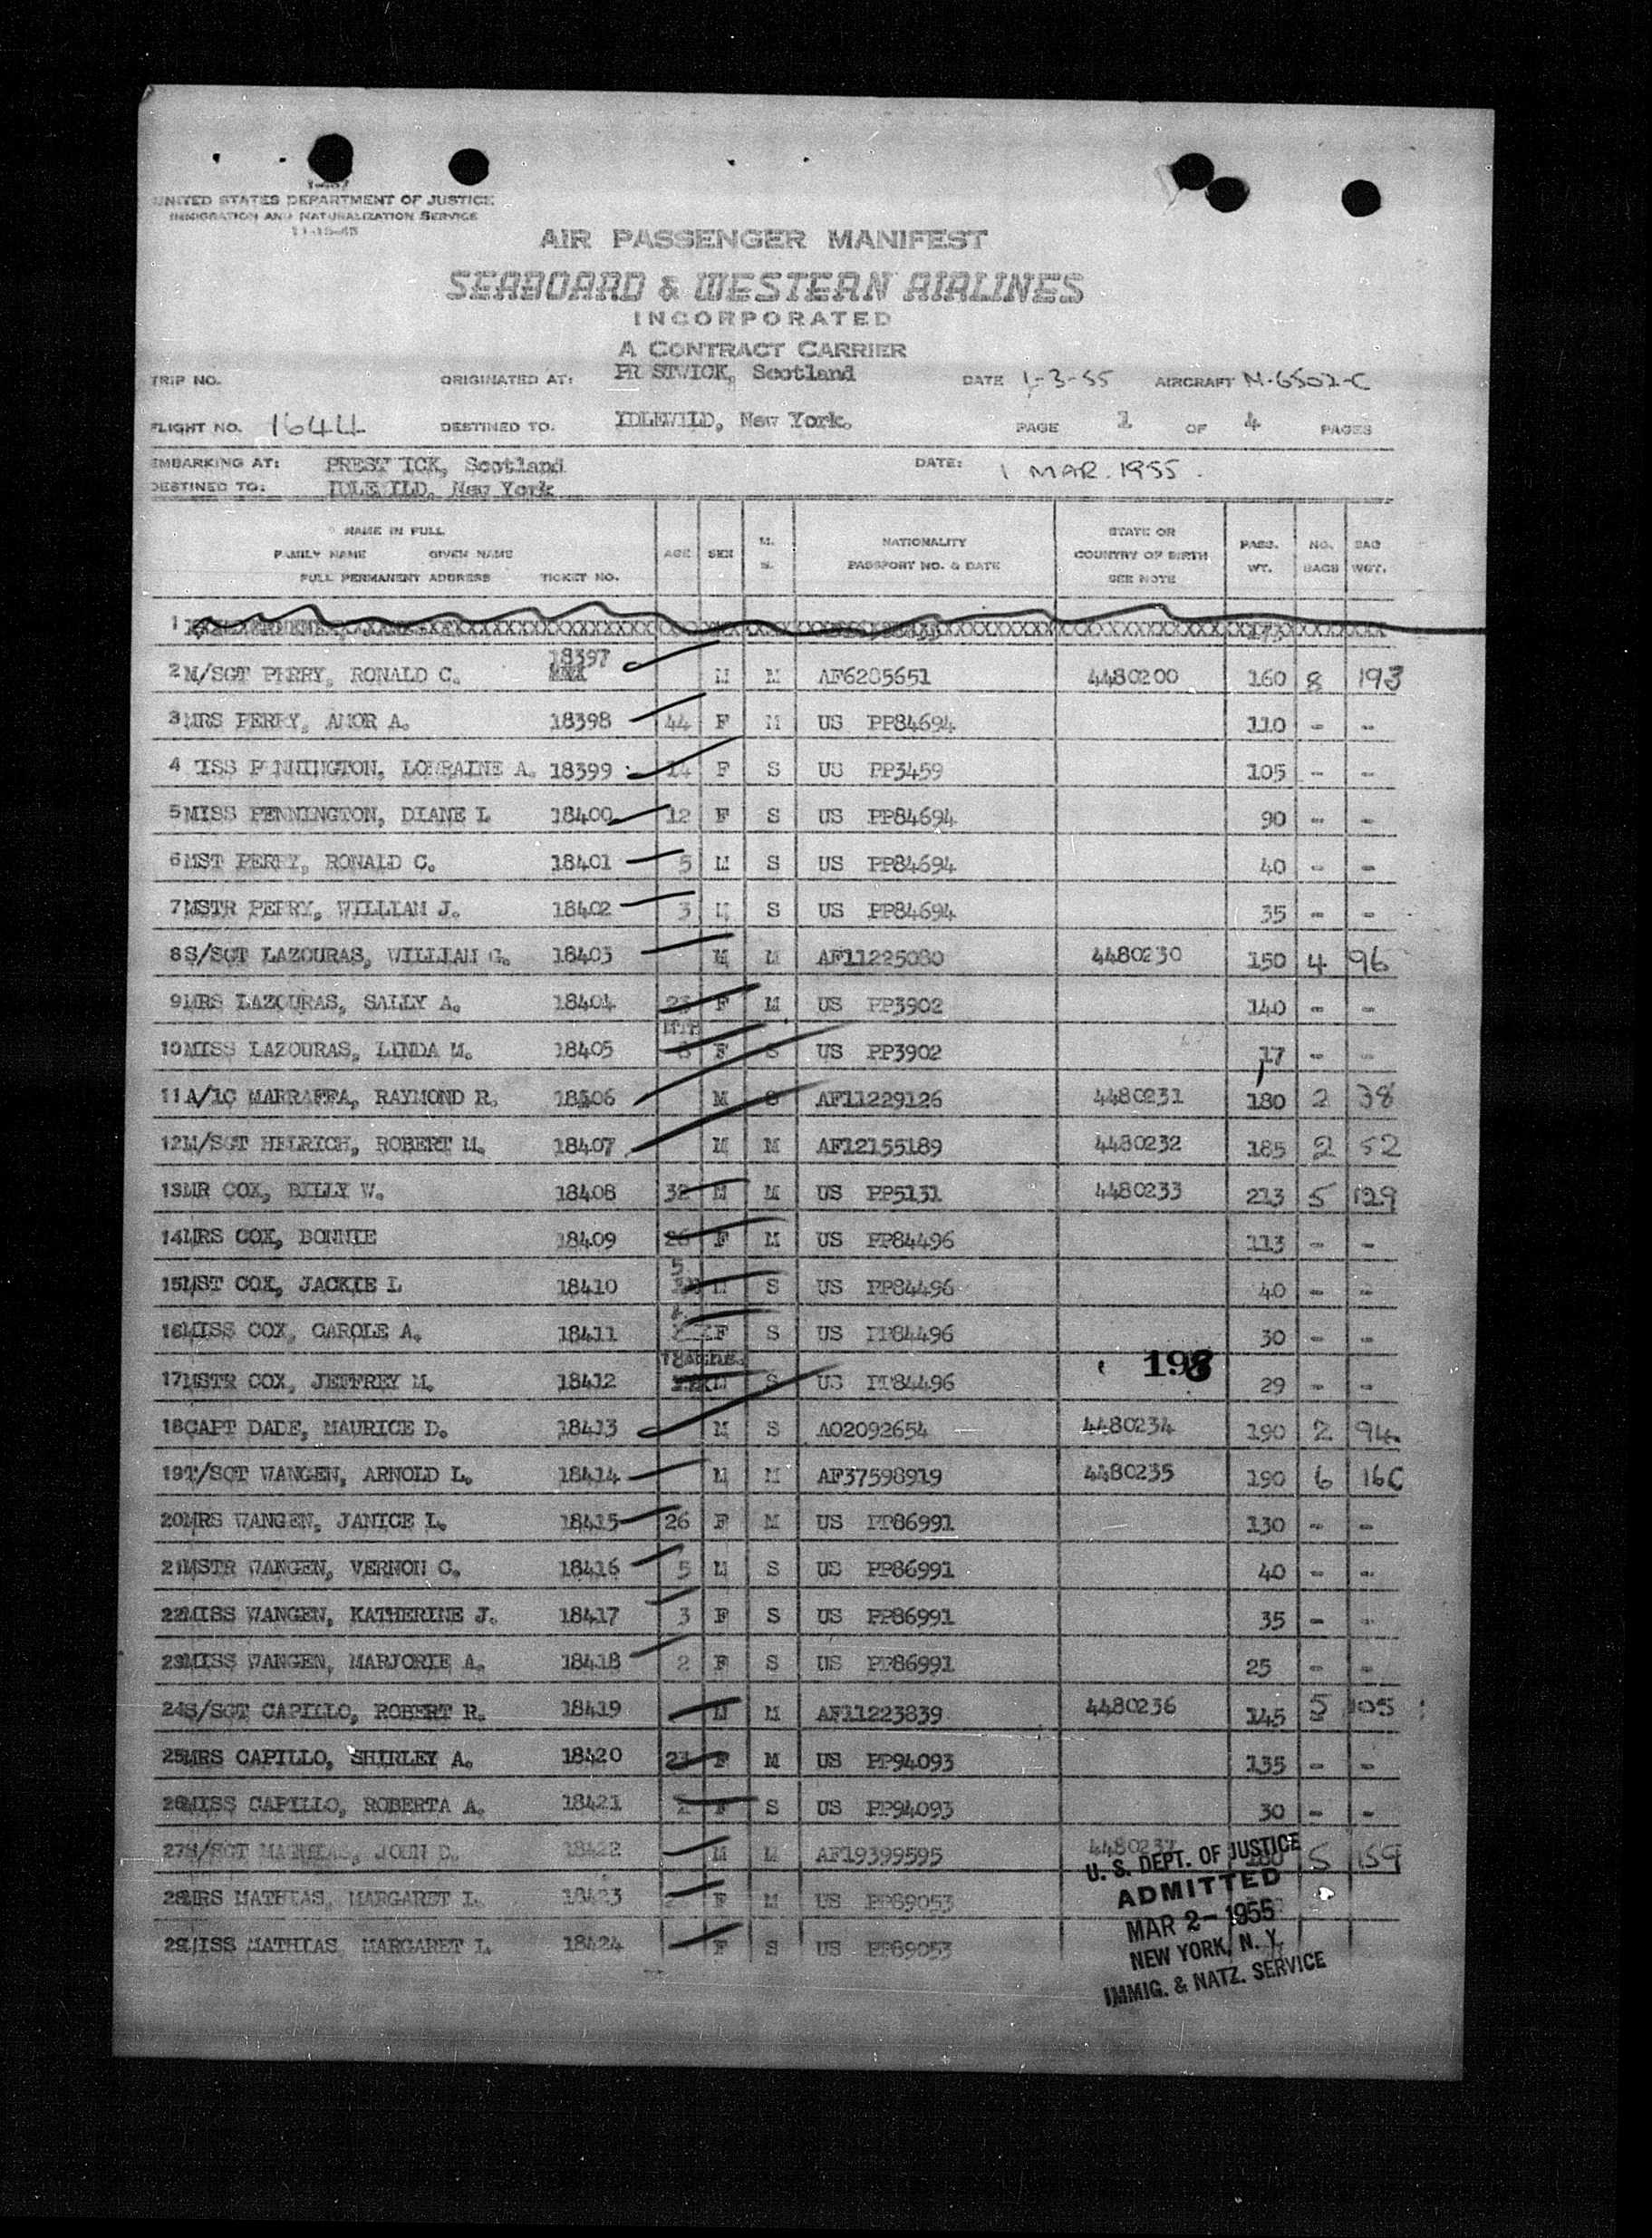 UNITED STATES DEPARTMENT OF JUSTICE
IMMIGRATION AND NATURALIZATION SERVICE
11-15-45
AIR PASSENGER MANIFEST
SEABOARD & WESTERN AIRLINES
INCORPORATED
A CONTRACT CARRIER
TRIP NO. ORIGINATED AT: PR STWICK, Scotland DATE 1-3-55 AIRCRAFT N-6502-C
FLIGHT NO. 1644 DESTINED TO. IDLEWILD, New York. PAGE 1 OF 4 PAGES
EMBARKING AT: PREST ICK, Scotland DATE: 1 MAR. 1955.
DESTINED TO. IDLEWILD, New York
NAME IN FULL
FAMILY NAME GIVEN NAME
FULL PERMANENT ADDRESS TICKET NO. AGE SEX M. S. NATIONALITY PASSPORT NO. & DATE STATE OR COUNTRY OF BIRTH SEE NOTE PASS. WT. NO. BAGS BAG WGT.
1
2 M/SGT PERRY, RONALD C. 18397 M M AF6285651 4480200 160 8 193
3 MRS PERRY, AMOR A. 18398 44 F M US PP84694 110 - -
4 ISS P NNINGTON, LORRAINE A. 18399 14 F S US PP3459 105 - -
5 MISS PENNINGTON, DIANE L 18400 12 F S US PP84694 90 - -
6 MST PERRY, RONALD C. 18401 5 M S US PP84694 40 - -
7 MSTR PERRY, WILLIAM J. 18402 3 M S US PP84694 35 - -
8 S/SGT LAZOURAS, WILLIAM G. 18403 M M AF11225080 4480230 150 4 96
9 MRS LAZOURAS, SALLY A. 18404 23 F M US PP3902 140 - -
10 MISS LAZOURAS, LINDA M. 18405 MTH 8 F S US PP3902 17 - -
11 A/1C MARRAFFA, RAYMOND R. 18406 M S AF11229126 4480231 180 2 38
12 M/SGT HELRICH, ROBERT M. 18407 M M AF12155189 4480232 185 2 52
13 MR COX, BILLY W. 18408 32 M M US PP5131 4480233 213 5 129
14 MRS COX, BONNIE 18409 26 F M US PP84496 113 - -
15 MST COX, JACKIE L 18410 5 M S US PP84496 40 - -
16 MISS COX, CAROLE A. 18411 F S US PP84496 30 - -
198
17 MSTR COX, JEFFREY M. 18412 18 M S US PP84496 29 - -
18 CAPT DADE, MAURICE D. 18413 M S AO2092654 4480234 190 2 94
19 T/SGT WANGEN, ARNOLD L. 18414 M M AF37598919 4480235 190 6 160
20 MRS WANGEN, JANICE L. 18415 26 F M US PP86991 130 - -
21 MSTR WANGEN, VERNON C. 18416 5 M S US PP86991 40 - -
22 MISS WANGEN, KATHERINE J. 18417 3 F S US PP86991 35 - -
23 MISS WANGEN, MARJORIE A. 18418 2 F S US PP86991 25 - -
24 S/SGT CAPILLO, ROBERT R. 18419 M M AF11223839 4480236 145 5 105
25 MRS CAPILLO, SHIRLEY A. 18420 23 F M US PP94093 135 - -
26 MISS CAPILLO, ROBERTA A. 18421 F S US PP94093 30 - -
27 S/SGT MATHIAS, JOHN D. 18422 M M AF19399595 4480237 5 159
28 MRS MATHIAS, MARGARET L. 18423 F M US PP89053
29 MISS MATHIAS MARGARET L. 18424 F S US PP89053
U. S. DEPT. OF JUSTICE
ADMITTED
MAR 2- 1955
NEW YORK, N. Y.
IMMIG. & NATZ. SERVICE